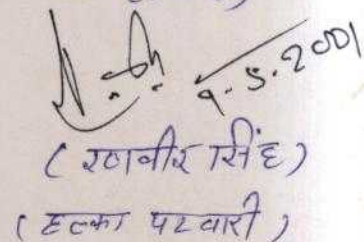 9.5.2001
(रणवीर सिंह)
(हल्का पटवारी)